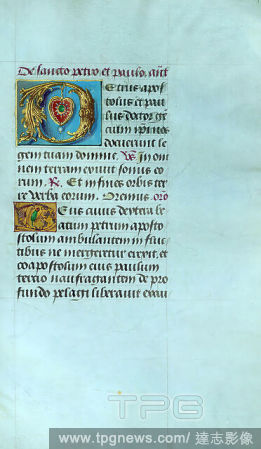 De sancto petro et paulo. ant
Petrus apos
tolus et pau
lus doctor gen
cium ip̄i nos
docuerunt le
gem tuam domine. V. In om
nem terram exivit sonus eo
rum. R. Et in fines orbis ter
re verba eorum. Oremus. oro
Deus cuius dextera be
atum petrum aposto
stolum ambulantem in fluc
tibus ne mergeretur erexit, et
coapostolum eius paulum
tercio naufragantem de pro
fundo pelagi liberavit exau
TPG
www.tpgnews.com/ 達志影像